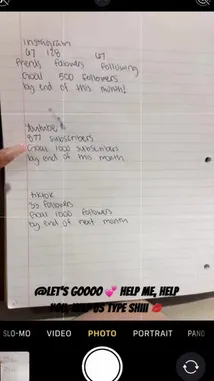 instagram
67 128 67
friends followers following
Goal 500 followers
by end of this month!
Youtube
877 subscribers
Goal 1000 subscribers
by end of this month
tiktok
followers
Goal 1000 followers
by end of next month
@LET'S GOOOO 💕 HELP ME, HELP
YOU, HELP US TYPE SHIII 💋
SLO-MO VIDEO PHOTO PORTRAIT PANO